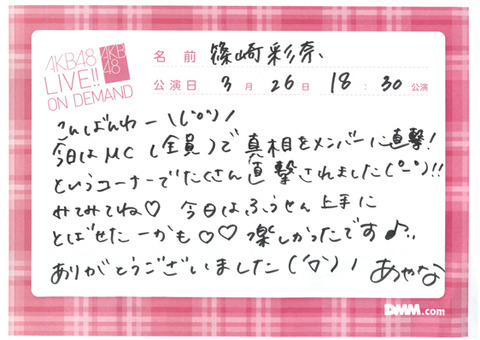 AKB48
LIVE!!
ON DEMAND
AKB
48
名前 篠崎彩奈、
公演日 3月26日 18:30公演
こんばんわー\(°▽°)/
今日はMC(全員)で真相をメンバーに直撃!
というコーナーでたくさん直撃されました(°ー°)!!
みてみてね♡ 今日はふうせん上手に
とばせたーかも♡♡ 楽しかったです♪..
ありがとうございました(´▽`)ノ あやな
DMM.com